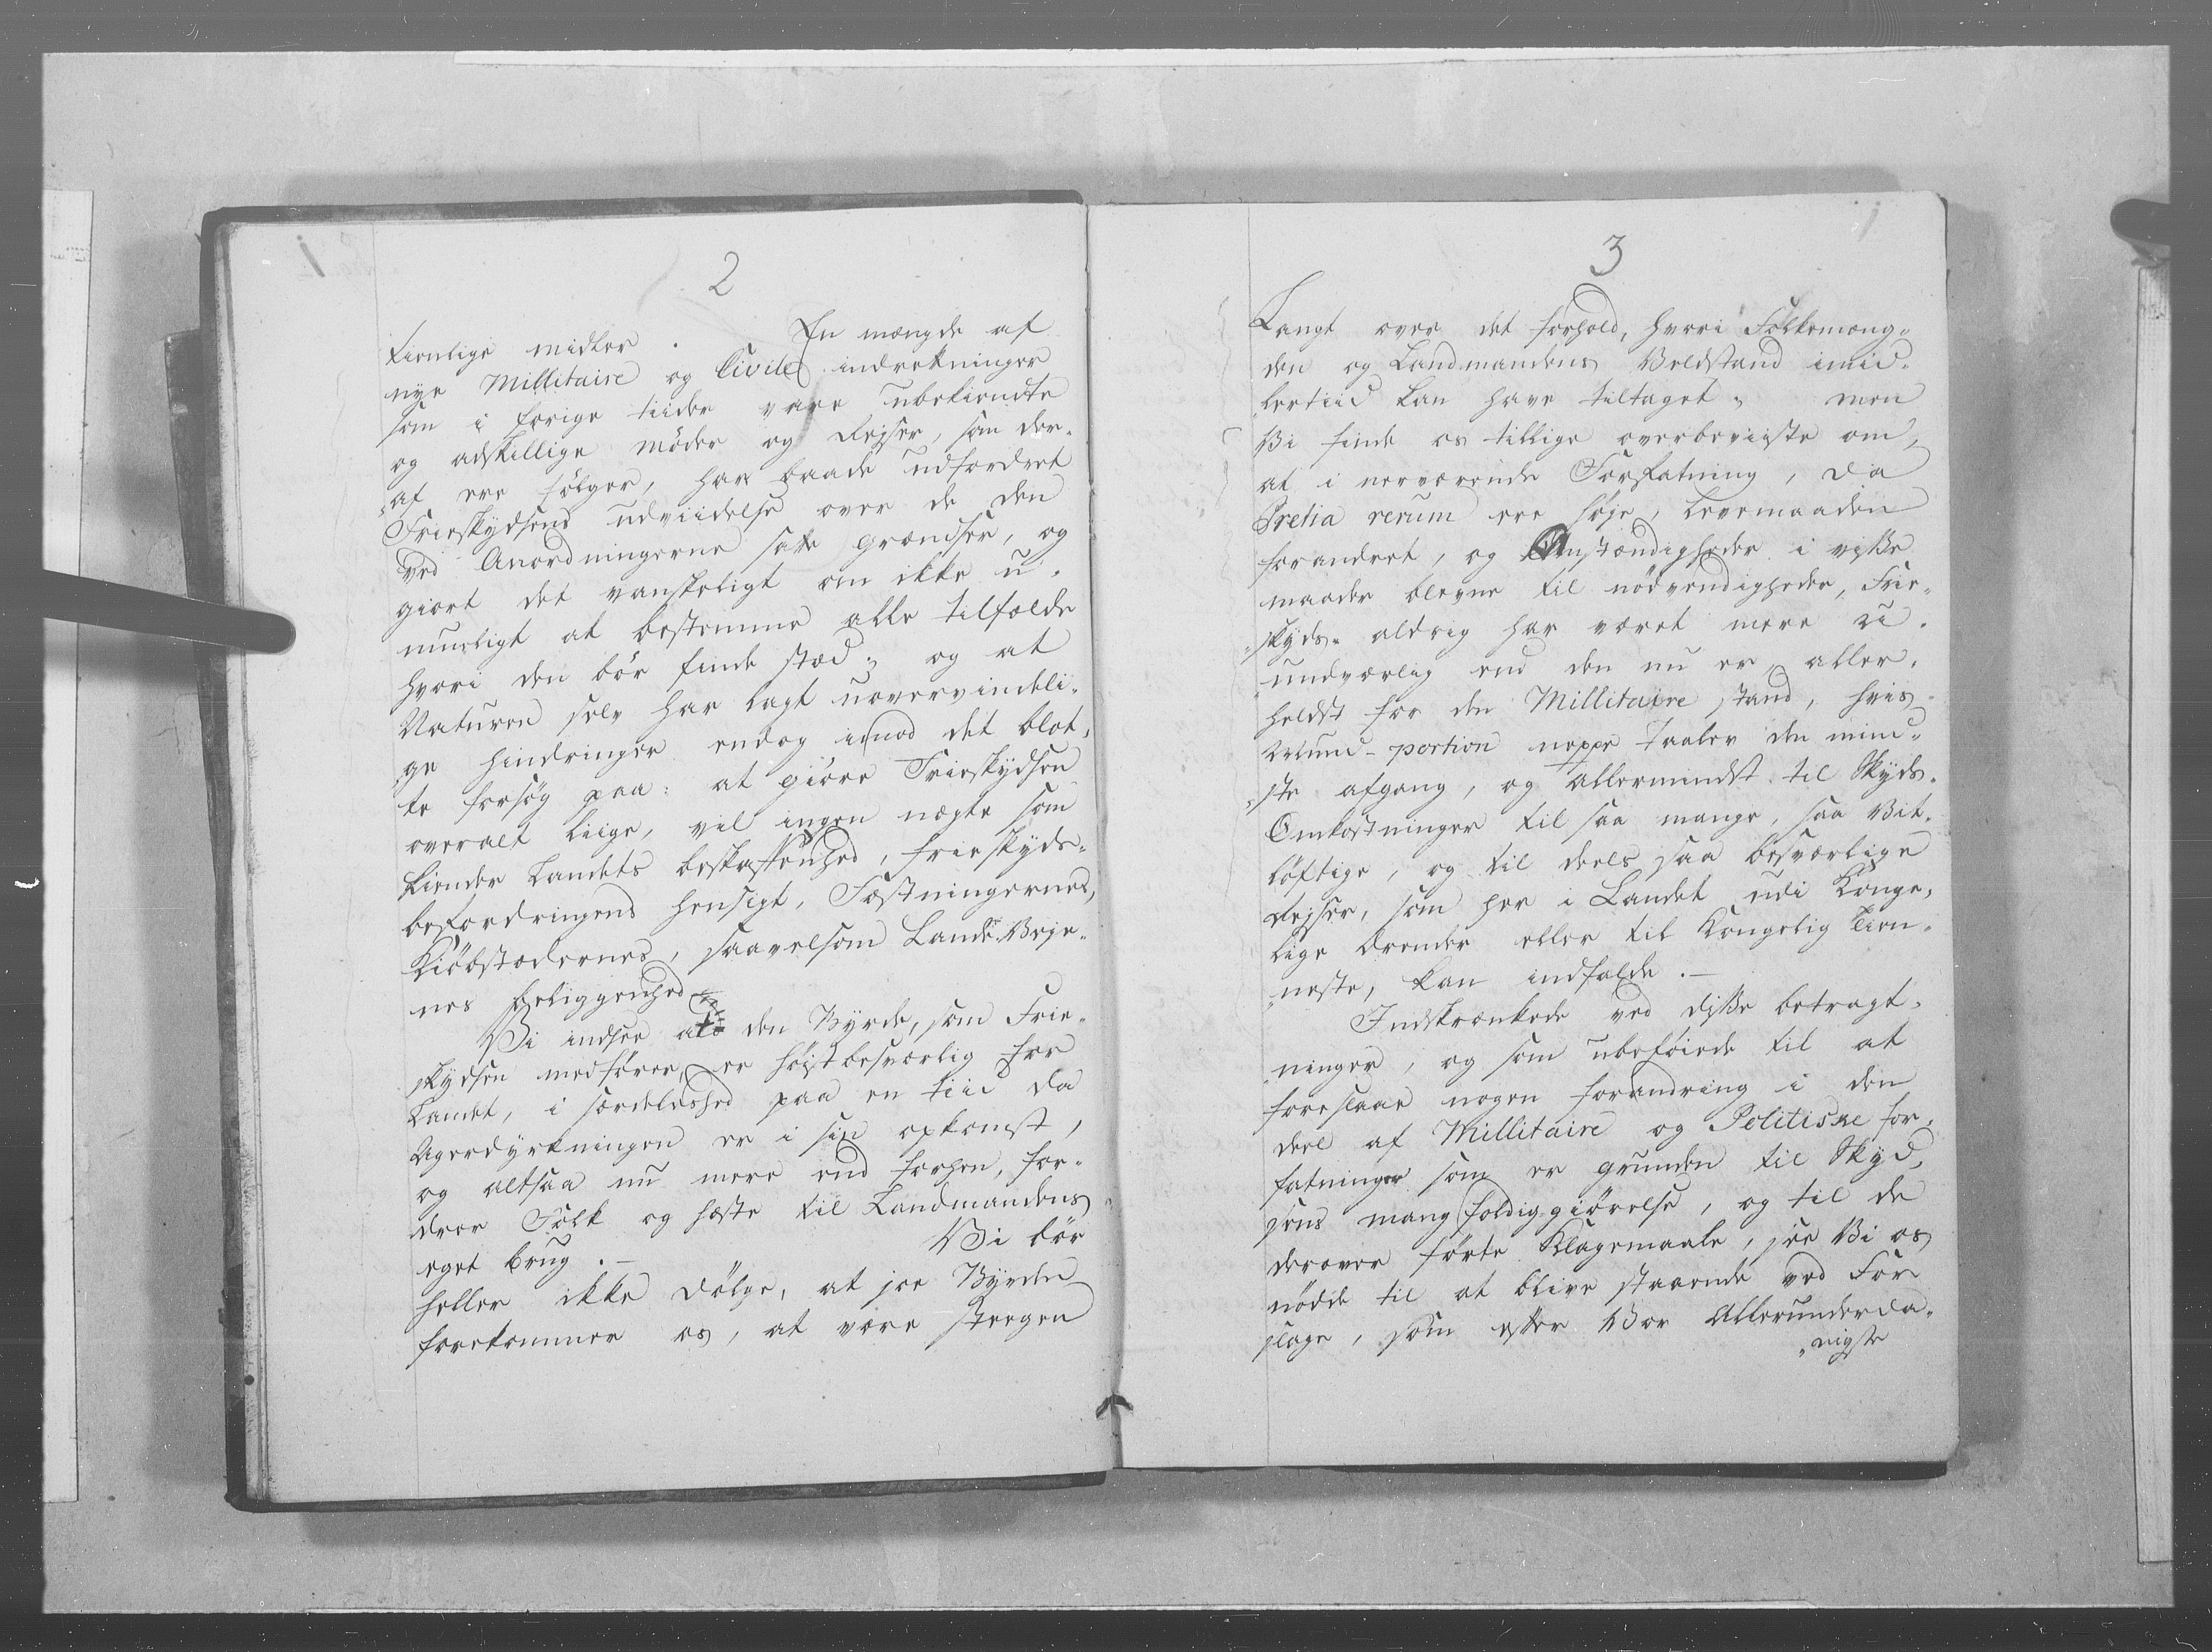 2
tienlige midler. En mængde af
nye Millitaire og Civile indretninger
som i forige tiider vare ubekiendte
og adskillige møder og Rejser, som der-
"af ere følger, har baade udfordret
Frieskydsens udviidelse over de den
ved Anordningerne satte grændser, og
giort det vanskeligt om ikke u-
mueligt at bestemme alle tilfælde
hvori den bør finde stæd; og at
Naturen selv har lagt uovervindeli-
"ge hindringer endog imod det blot-
te forsøg paa: at giøre Frieskydsen
overalt liige, vil ingen nægte som
kiender Landets beskaffenhed, frieskyds-
befordringens hensigt, Fæstningernes,
Kiøbstædernes, saavelsom Lande-Veje-
nes beliggenhed
Vi indsee at den Byrde, som Frie-
skydsen medfører, er høist besværlig for
Landet, i særdeleshed paa en tiid da
Agerdyrkningen er i sin opkomst,
og altsaa nu mere end forhen, for-
drer Folk og hæste til Landmandens
eget brug. — Vi bør
heller ikke dølge, at jo Byrden
forekommer os, at være steegen
3
Langt over det forhold, hvori Folkemæng-
den og Landmandens Velstand imid-
lertiid kan have tiltaget; men
Vi finde os tillige overbeviiste om,
at i nerværende Forfatning, da
Pretia rerum ere høje, levemaaden
forandret, og Anstændigheder i visse
maader blevne til nødvendigheder, Frie-
"skyds- aldrig har været mere u-
undværlig end den nu er, aller-
heldst for den Millitaire stand, hvis
portion neppe taaler den mind-
"ste afgang, og allermindst til Skyds-
Omkostninger til saa mange, saa Vit-
løftige, og til deels saa besværlige
Rejser, som her i Landet udi Konge-
lige Ærender eller til Kongelig tien-
"neste, kan indfalde. —
Indskrænkede ved disse betragt-
"ninger, og som ubeføiede til at
foreslaae nogen forandring i den
deel af Millitaire og Politiske for-
fatninger som er grunden til Skyd-
sens mangfoldiggiørelse, og til de
derover førte Klagemaale, see Vi os
nødde til at blive staaende ved For
slage, som efter Vor Allerunderda-
"nigste